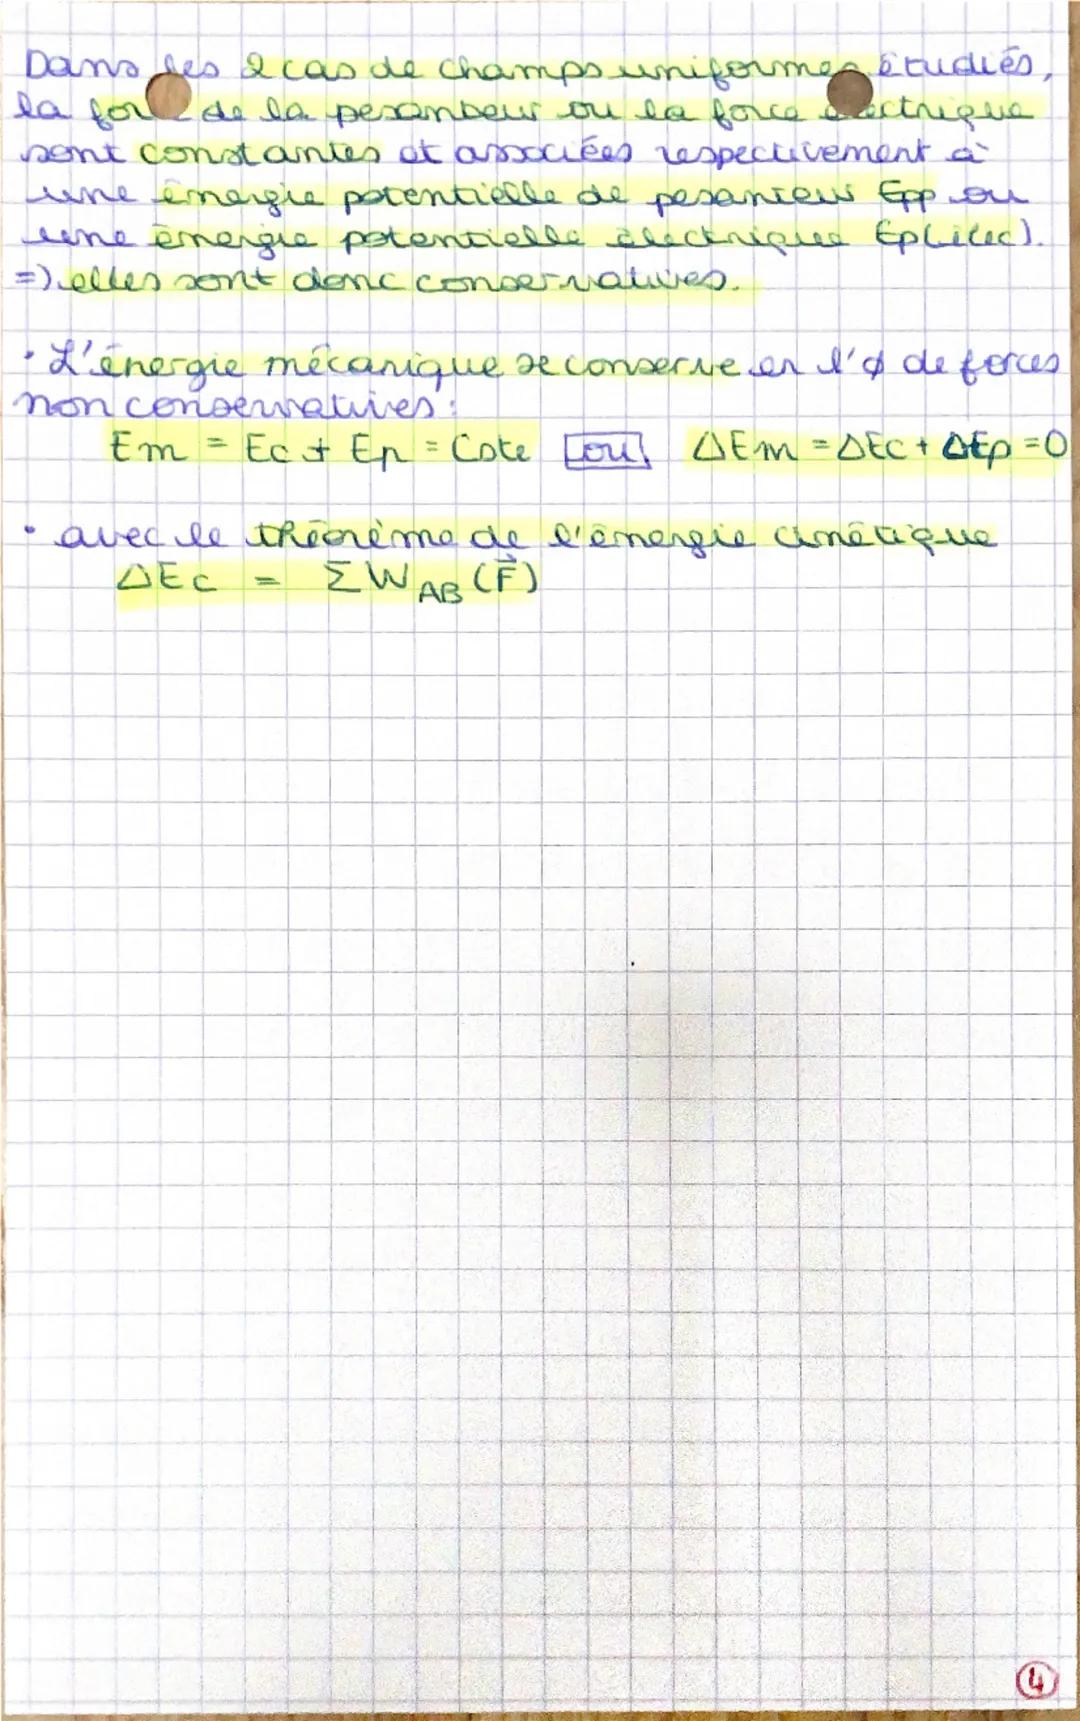 Dans les 2 cas de champs uniformes étudiés,
la force de la pesanteur ou la force électrique
sont constantes et associées respectivement à
une énergie potentielle de pesanteur Epp ou
une énergie potentielle électrique Ep(élec).
=) elles sont donc conservatives.
• L'énergie mécanique se conserve en l'∅ de forces
non conservatives :
Em = Ec + Ep = Cste ou ΔEm = ΔEc + ΔEp = 0
• avec le théorème de l'énergie cinétique
ΔEc = Σ W_AB (F⃗)
4